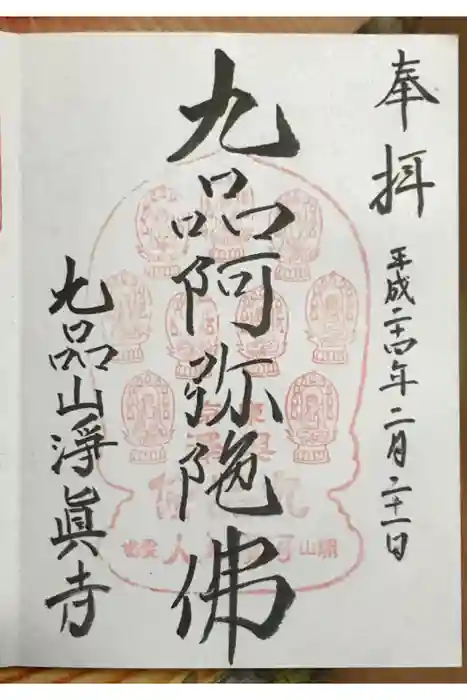 奉拝
平成二十四年二月二十一日
九品阿弥陀佛
九品山淨眞寺